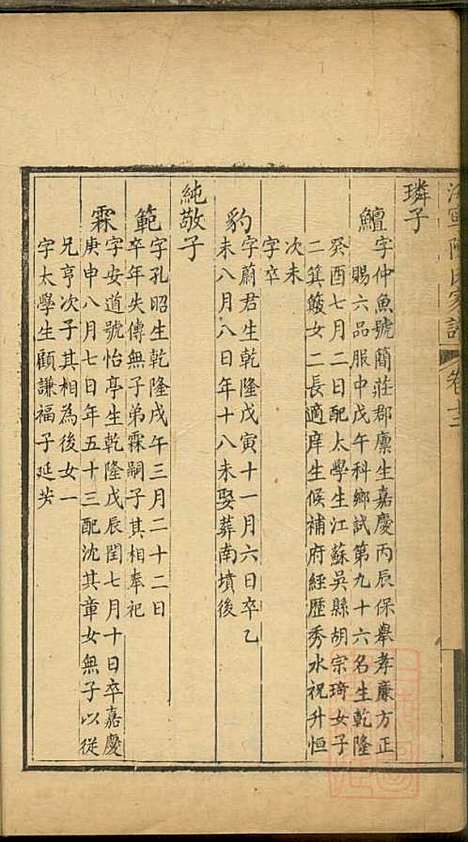 海寧陳氏家譜 卷十三
璘子
鱣
字仲魚號簡莊郡廩生嘉慶丙辰保舉孝廉方正
賜六品服中戊午科鄉試第九十六名生乾隆
癸酉七月二日配太學生江蘇吳縣胡宗琦女子
二箕簸女二長適庠生候補府經歷秀水祝升恒
次未
字卒
豹
字蔚君生乾隆戊寅十一月六日卒乙
未八月八日年十八未娶葬南墳後
純敬子
範
字孔昭生乾隆戊午三月二十二日
卒年失傳無子弟霖嗣子其相奉祀
霖
字安道號怡亭生乾隆戊辰閏七月十日卒嘉慶
庚申八月七日年五十三配沈其章女無子以從
兄亨次子其相為後女一
字太學生顧謙福子延